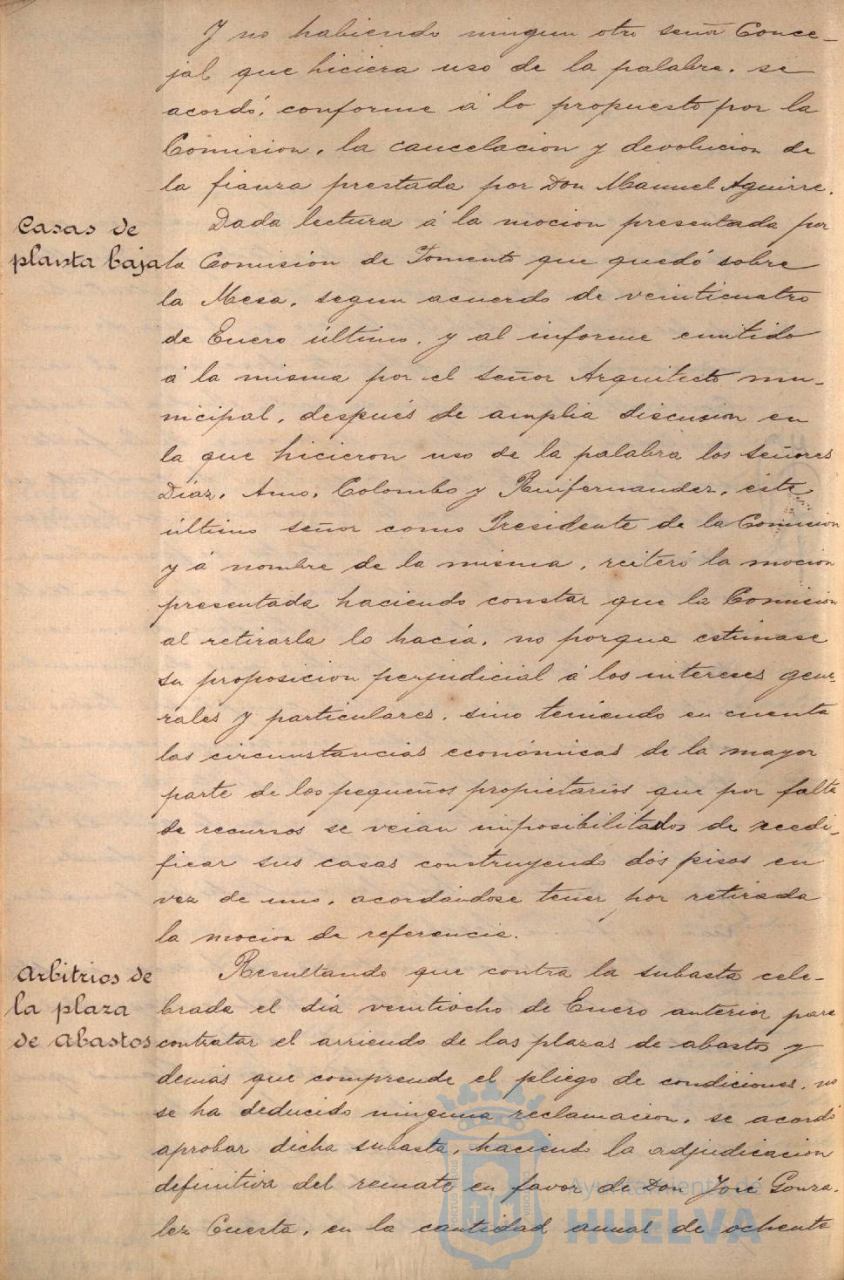 Y no habiendo ningun otro señor Conce-
jal que hiciera uso de la palabra, se
acordó, conforme á lo propuesto por la
Comision, la cancelacion y devolucion de
la fianza prestada por Don Manuel Aguirre.
Casas de
planta baja
Dada lectura á la mocion presentada por
la Comisión de Fomento que quedó sobre
la Mesa, segun acuerdo de veinticuatro
de Enero último, y al informe emitido
á la misma por el señor Arquitecto mu-
nicipal, después de amplia discusion en
la que hicieron uso de la palabra los señores
Díaz, Amo, Colombo y Ruifernandez, éste
último señor como Presidente de la Comision
y á nombre de la misma, reiteró la mocion
presentada haciendo constar que la Comision
al retirarla lo hacía, no porque estimase
su proposicion perjudicial á los intereses gene-
rales y particulares, sino teniendo en cuenta
las circunstancias económicas de la mayor
parte de los pequeños propietarios que por falta
de recursos se veian imposibilitados de reedi-
ficar sus casas construyendo dos pisos en
vez de uno, acordándose tener por retirada
la mocion de referencia.
Arbitrios de
la plaza
de abastos
Resultando que contra la subasta cele-
brada el día veintiocho de Enero anterior para
contratar el arriendo de las plazas de abastos y
demás que comprende el pliego de condiciones, no
se ha deducido ninguna reclamacion, se acordó
aprobar dicha subasta, haciendo la adjudicacion
definitiva del remate en favor de Don José Gonza-
lez Cuesta, en la cantidad anual de ochenta
Ayuntamiento de
HUELVA